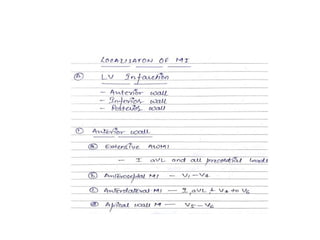 LOCALISATON OF MI
LV Infarction
- Anterior wall
- Inferior wall
- Posterior wall
Anterior wall
(a) Extensive AWMI
- I aVL and all precordial leads
(b) Anteroseptal MI - V1-V4
(c) Anterolateral MI - I, aVL & V4 to V6
(d) Apical wall M - V5-V6